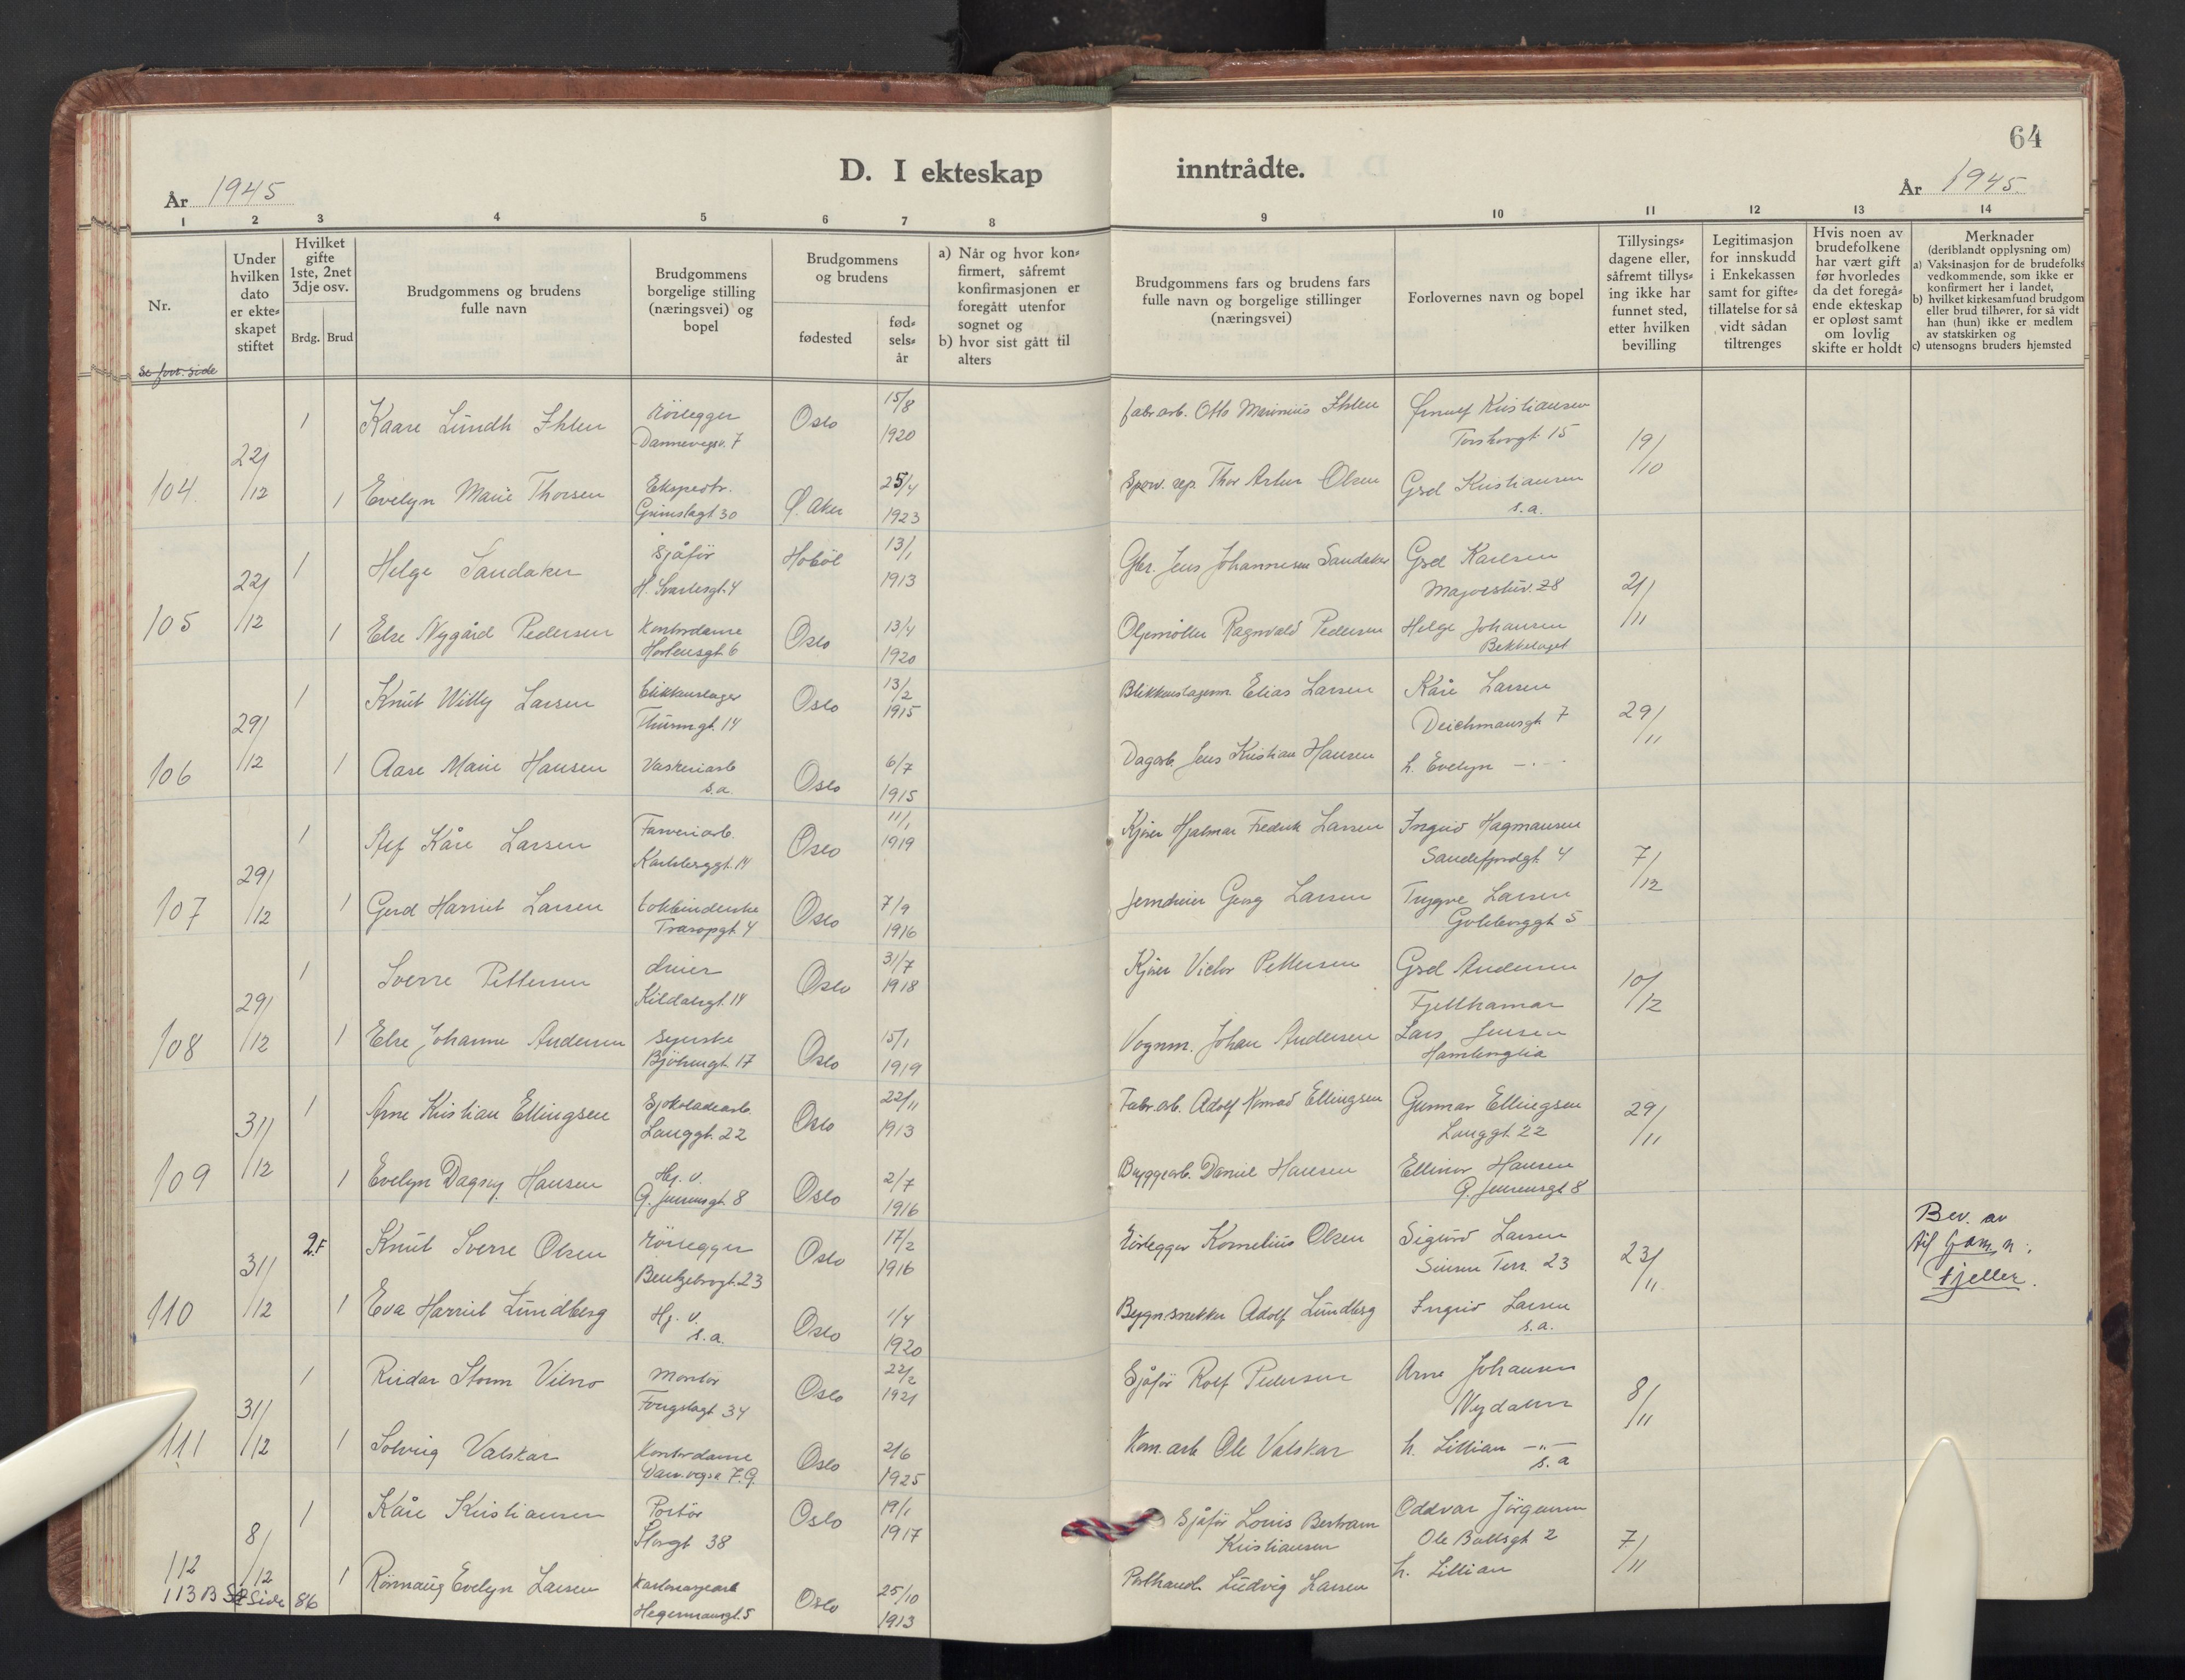 64
D. I ekteskap inntrådte.
År 1945
År 1945
1 2 3 4 5 6 7 8 9 10 11 12 13 14
Nr.
Under hvilken dato er ekte-skapet stiftet
Hvilket gifte 1ste, 2net 3dje osv.
Brdg. Brud
Brudgommens og brudens fulle navn
Brudgommens borgelige stilling (næringsvei) og bopel
Brudgommens og brudens
fødested
fød-sels-år
a) Når og hvor kon-firmert, såfremt konfirmasjonen er foregått utenfor sognet og
b) hvor sist gått til alters
Brudgommens fars og brudens fars fulle navn og borgelige stillinger (næringsvei)
Forlovernes navn og bopel
Tillysings-dagene eller, såfremt tillys-ing ikke har funnet sted, etter hvilken bevilling
Legitimasjon for innskudd i Enkekassen samt for gifte-tillatelse for så vidt sådan tiltrenges
Hvis noen av brudefolkene har vært gift før hvorledes da det foregå-ende ekteskap er opløst samt om lovlig skifte er holdt
Merknader (deriblandt opplysning om)
a) Vaksinasjon for de brudefolks vedkommende, som ikke er konfirmert her i landet,
b) hvilket kirkesamfund brudgom eller brud tilhører, for så vidt han (hun) ikke er medlem av statskirken og
c) utensogns bruders hjemsted
Se forr. side
104 22/12 1 Kaare Lundh Ihlen Rørlegger Dannevegsv. 7 Oslo 15/8 1920 fabr.arb. Otto Marinius Ihlen Kristiansen Torshovgt. 15 19/10
1 Evelyn Marie Thorsen Ekspedtr. Grimstagt. 30 Ø. Aker 25/4 1923 Sporv. rep. Thor Artur Olsen Gerd Kristiansen s.a.
105 22/12 1 Helge Sandaker Sjåfør H. Svartesgt. 4 Hobøl 13/1 1913 Gbr. Jens Johannesen Sandaker Gerd Karlsen Majorstuv. 28 21/11
1 Else Nygård Pedersen Kontordame Hortensgt. 6 Oslo 13/4 1920 Oljemøller Ragnvald Pedersen Helge Johansen Bekkelaget
106 29/12 1 Knut Willy Larsen blikkenslager Thurmgt. 14 Oslo 13/2 1915 Blikkenslagerm. Elias Larsen Kåre Larsen Deichmansgt. 7 29/11
1 Aase Marie Hansen Vaskeriarb. s.a. Oslo 6/7 1915 Dagarb. Jens Kristian Hansen h. Evelyn —"—
107 29/12 1 Alf Kåre Larsen Farveriarb. Karlsborggt. 14 Oslo 11/1 1919 Kjører Hjalmar Fredrik Larsen Ingrid Hagmansen Sandefjordgt. 4 7/12
1 Gerd Harriet Larsen bokbinderske Traropgt. 4 Oslo 7/9 1916 Jerndreier Georg Larsen Trygve Larsen Göteborggt. 5
108 29/12 1 Sverre Pettersen dreier Kildalsgt. 14 Oslo 31/7 1918 Kjører Victor Pettersen Gerd Andersen Fjellhamar 10/12
1 Else Johanne Andersen syerske Bjølsengt. 17 Oslo 15/1 1919 Vognm. Johan Andersen Lars Jensen Hamlenglia
109 31/12 1 Arne Kristian Ellingsen Sjokoladearb. Langgt. 22 Oslo 22/11 1913 Fabr.arb. Adolf Konrad Ellingsen Gunnar Ellingsen Langgt. 22 29/11
1 Evelyn Dagny Hansen Hj. v. G. Jensensgt. 8 Oslo 2/7 1916 Bryggearb. Daniel Hansen Ellinor Hansen G. Jensensgt. 8
110 31/12 2.F Knut Sverre Olsen Rørlegger Bentzebrogt. 23 Oslo 17/2 1916 Rørlegger Kornelius Olsen Sigurd Larsen Sinsen Terr. 23 23/11 Bev. av
1 Eva Harriet Lundberg Hj. v. s.a. Oslo 1/4 1920 Bygn.snekker Adolf Lundberg Ingrid Larsen s.a.
111 31/12 1 Reidar Storm Vilno Montør Tongstagt. 34 Oslo 22/2 1921 Sjåfør Rolf Pedersen Arne Johansen Nydalen 8/11
1 Solveig Valskar Kontordame Dan.vegsv. 7.G. Oslo 2/6 1925 Kom.arb. Ole Valskar h. Lillian —"— s.a
112 8/12 1 Kåre Kristiansen Portør Storgt. 38 Oslo 19/1 1917 Sjåfør Louis Bertram Kristiansen Oddvar Jörgensen Ole Bullsgt. 2 7/11
1 Rönnaug Evelyn Larsen Kartonasjearb. Hegermannsgt. 5 Oslo 25/10 1913 Ludvig Larsen h. Lillian
113 B Se Side 86